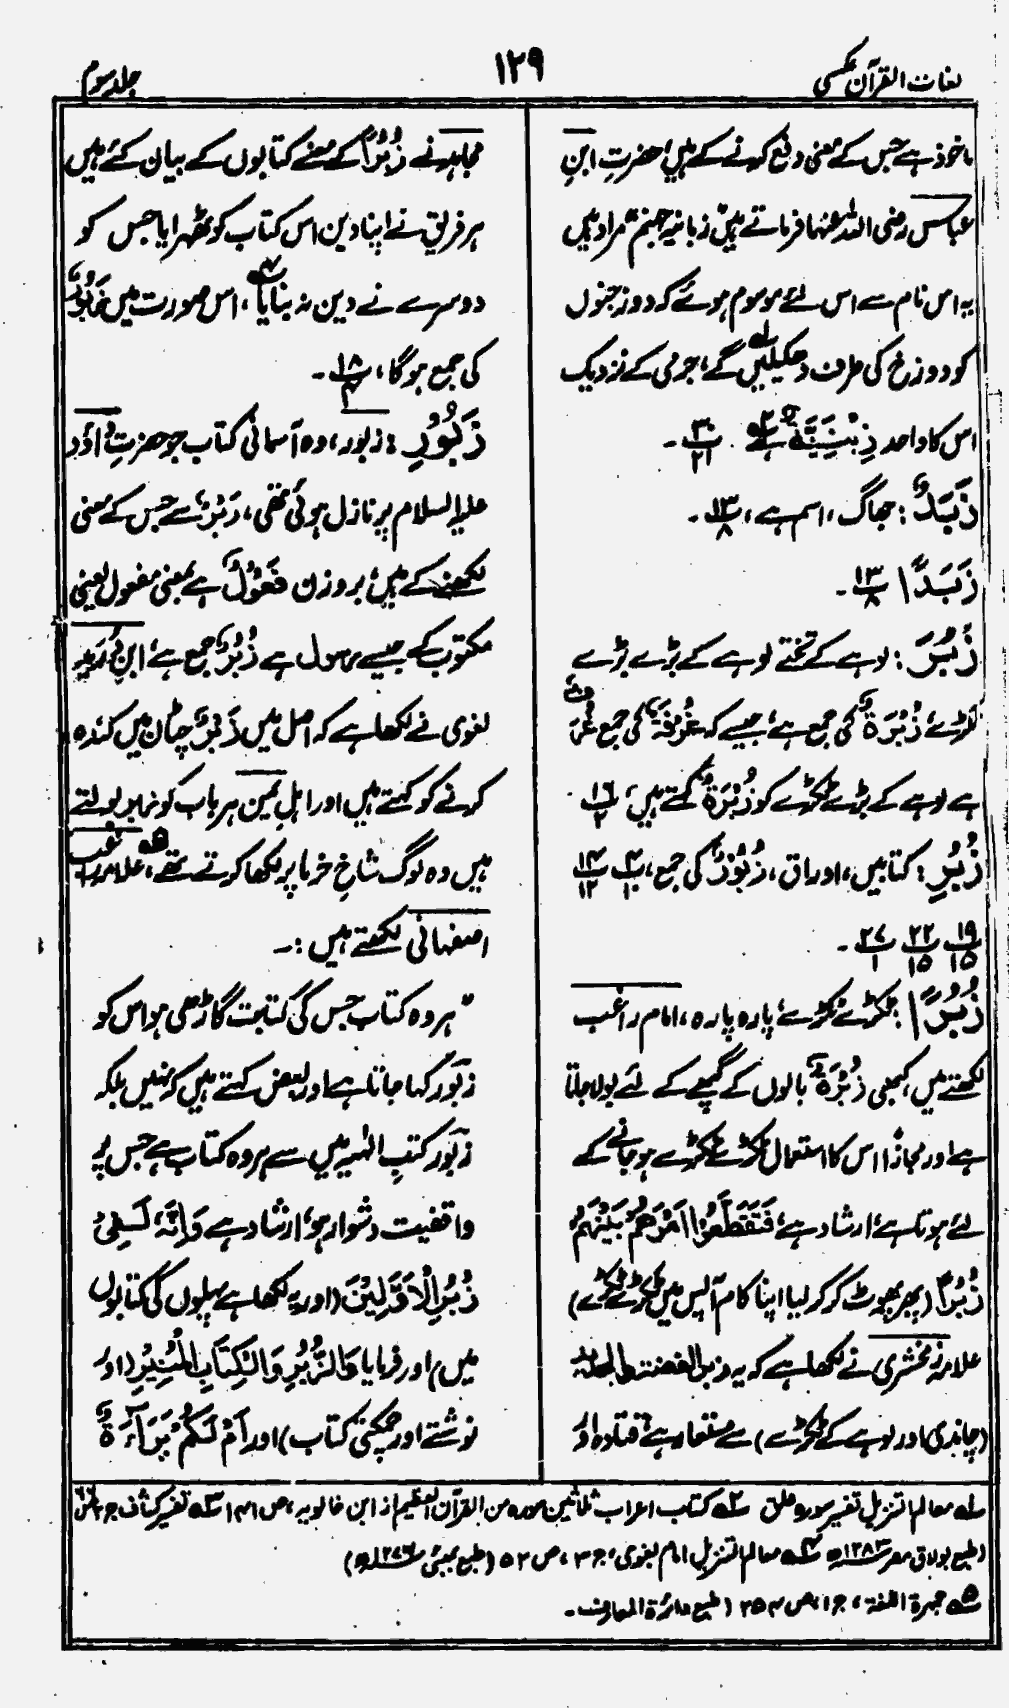 لغات القرآن عکسی
۱۲۹
جلد سوم
ماخوذ ہے جس کے معنی دفع کرنے کے ہیں، حضرتِ ابنِ
عباس رضی اللہ عنہما فرماتے ہیں زبانیہ جہنم مراد ہیں
یہ اس نام سے اس لئے موسوم ہوئے کہ دوزخیوں
کو دوزخ کی طرف دھکیلیں گے، جرمی کے نزدیک
اس کا واحد زِبْنِيَّةٌ ہے ۳۰/۲۱ ۔
زَبَدٌ : جھاگ، اسم ہے، ۱۳/۸ ۔
زَبَدًا ۱۳/۸ ۔
زُبَرَ : لوہے کے تختے لوہے کے بڑے بڑے
ٹکڑے زُبْرَةٌ کی جمع ہے، جیسے کہ غُرْفَةٌ کی جمع غُرَفٌ
ہے لوہے کے بڑے ٹکڑے کو زُبْرَةٌ کہتے ہیں، ۱۶/۲
زُبُرِ : کتابیں، اوراق، زُبُوْرٌ کی جمع، ۴/۱۰ ۱۴/۱۲
۱۹/۱۵ ۲۲/۱۵ ۲۷/۱ ۔
زُبُرًا : ٹکڑے ٹکڑے، پارہ پارہ، امام راغب
لکھتے ہیں، کبھی زُبْرَةٌ بالوں کے گچھے کے لئے بولا جاتا
ہے اور مجازًا اس کا استعمال ٹکڑے ٹکڑے ہو جانے کے
لئے ہوتا ہے، ارشاد ہے، فَتَقَطَّعُوْا اَمْرَهُمْ بَيْنَهُمْ
زُبُرًا (پھر پھوٹ کر کر لیا اپنا کام آپس میں ٹکڑے ٹکڑے)
علامہ زمخشری نے لکھا ہے کہ یہ زبر الفضة والحدید
(چاندی اور لوہے کے ٹکڑے) سے مستعار ہے، قتادہ اور
مجاہد نے زُبُرًا کے معنے کتابوں کے بیان کئے ہیں
ہر فریق نے اپنا دین اس کتاب کو ٹھہرایا جس کو
دوسرے نے دین نہ بنایا، اس صورت میں زَبُوْرٌ
کی جمع ہوگا، ۱۸/۴ ۔
زَبُوْرِ : زبور، وہ آسمانی کتاب جو حضرتِ داؤد
علیہ السلام پر نازل ہوئی تھی، زَبْرٌ سے جس کے معنی
لکھنے کے ہیں، بروزن فَعُوْلٌ ہے بمعنی مفعول یعنی
مکتوب کے جیسے رسول ہے زُبُرٌ جمع ہے، ابنِ دُرَید
لغوی نے لکھا ہے کہ اصل میں زَبْرٌ چٹان میں کندہ
کرنے کو کہتے ہیں اور اہلِ یمن ہر باب کو زبور بولتے
ہیں وہ لوگ شاخِ خرما پر لکھا کرتے تھے، علامہ راغب
اصفہانی لکھتے ہیں :۔
" ہر وہ کتاب جس کی کتابت گاڑھی ہو اس کو
زبور کہا جاتا ہے اور بعض کہتے ہیں کہ نہیں بلکہ
زبور کتبِ الٰہیہ میں سے ہر وہ کتاب ہے جس پر
واقفیت دشوار ہو، ارشاد ہے وَاِنَّهٗ لَفِيْ
زُبُرِ الْاَوَّلِيْنَ (اور یہ لکھا ہے پہلوں کی کتابوں
میں) اور فرمایا وَالزُّبُرِ وَالْكِتَابِ الْمُنِيْرِ (اور
نوشتے اور چمکتی کتاب) اور اَمْ لَكُمْ بَرَآءَةٌ
۱ے معالم التنزیل تفسیر سورہ علق ۲ے کتاب اعراب ثلاثین سورہ من القرآن العظیم از ابن خالویہ، ص ۱۴۱ ۳ے تفسیر کشاف ج ۲
(طبع بولاق مصر ۱۲۸۳ھ) ۴ے معالم التنزیل امام بغوی، ج ۳، ص ۵۲ (طبع بمبئی ۱۲۷۶ھ)
۵ے جمہرة اللغة، ج ۱، ص ۲۵۴ (طبع دائرة المعارف۔